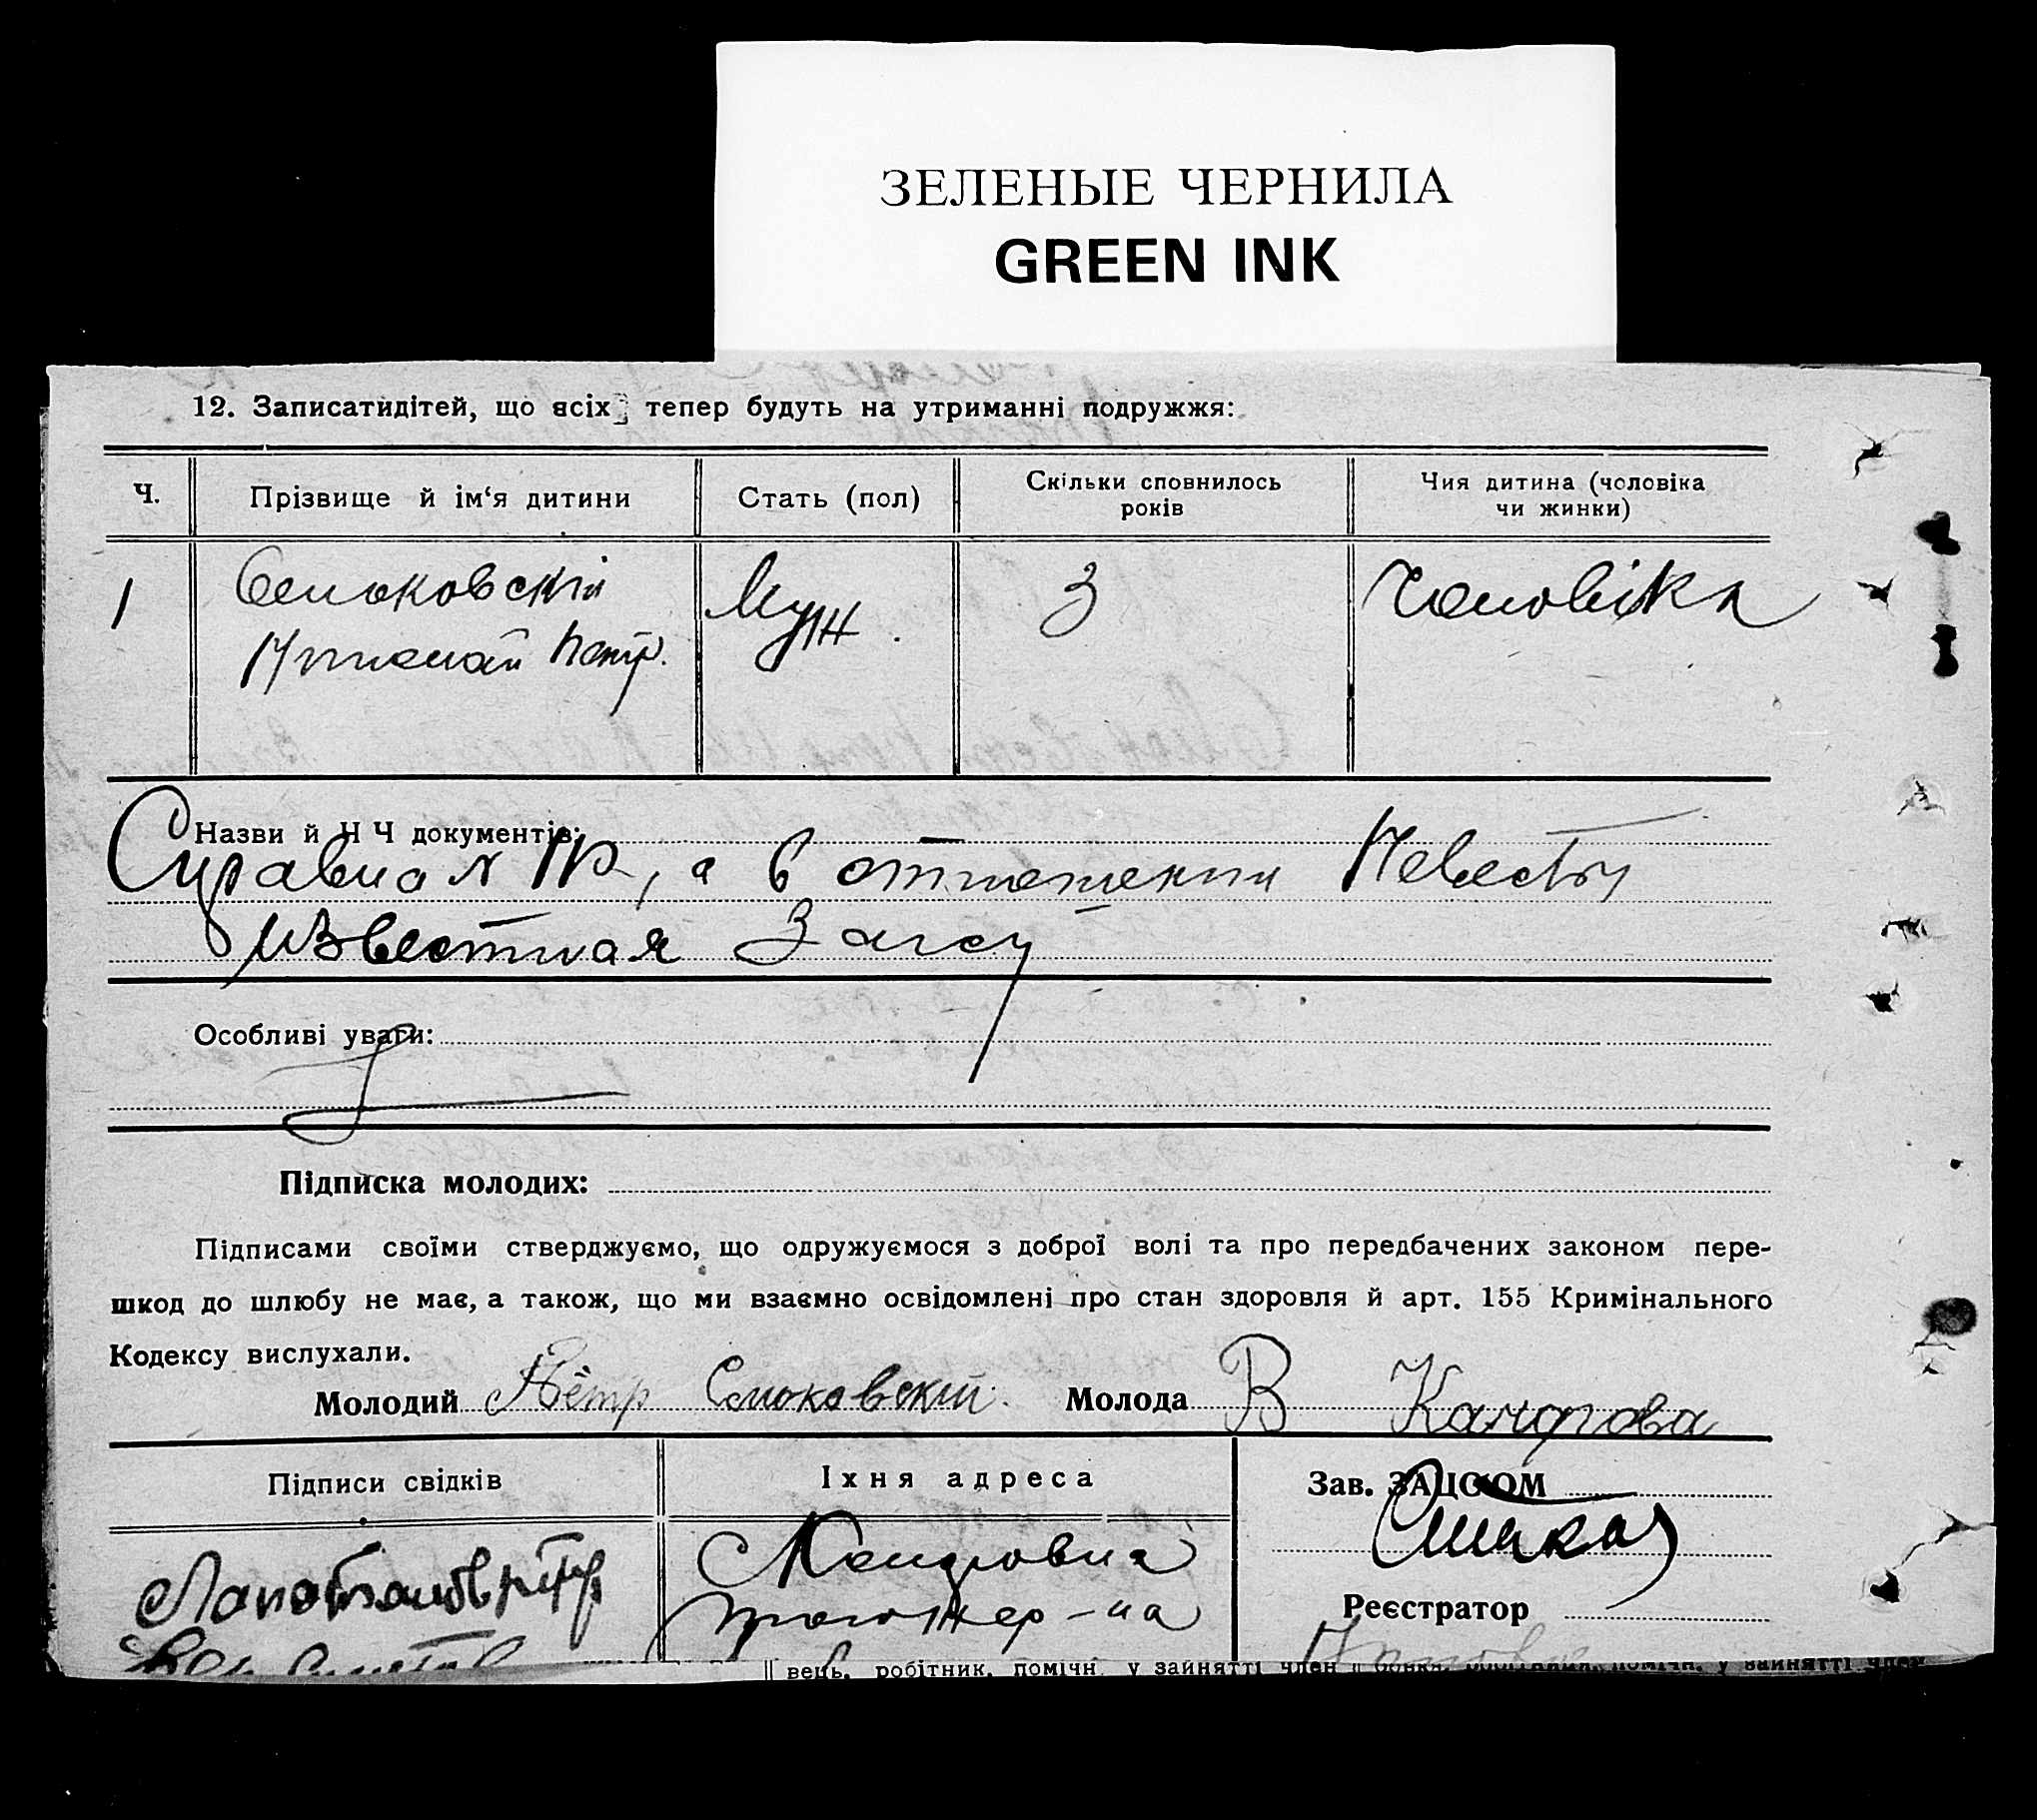 ЗЕЛЕНЫЕ ЧЕРНИЛА
GREEN INK
12. Записатидітей, що всіх тепер будуть на утриманні подружжя:
Ч.
Прізвище й ім‘я дитини
Стать (пол)
Скільки сповнилось
років
Чия дитина (чоловіка
чи жинки)
1
Смоковскій
Петр.
Муж.
3
Чоловіка
Назви й Н Ч документів:
а в отношении Невесты
известная Загсу
Особливі уваги:
Підписка молодих:
Підписами своїми стверджуємо, що одружуємося з доброї волі та про передбачених законом пере-
шкод до шлюбу не має, а також, що ми взаємно освідомлені про стан здоровля й арт. 155 Кримінального
Кодексу вислухали.
Молодий Пётр Смоковскій. Молода В
Підписи свідків
Їхня адреса
Зав. ЗАЦСОМ
Реєстратор
вець, робітник, помічн у зайнятті член